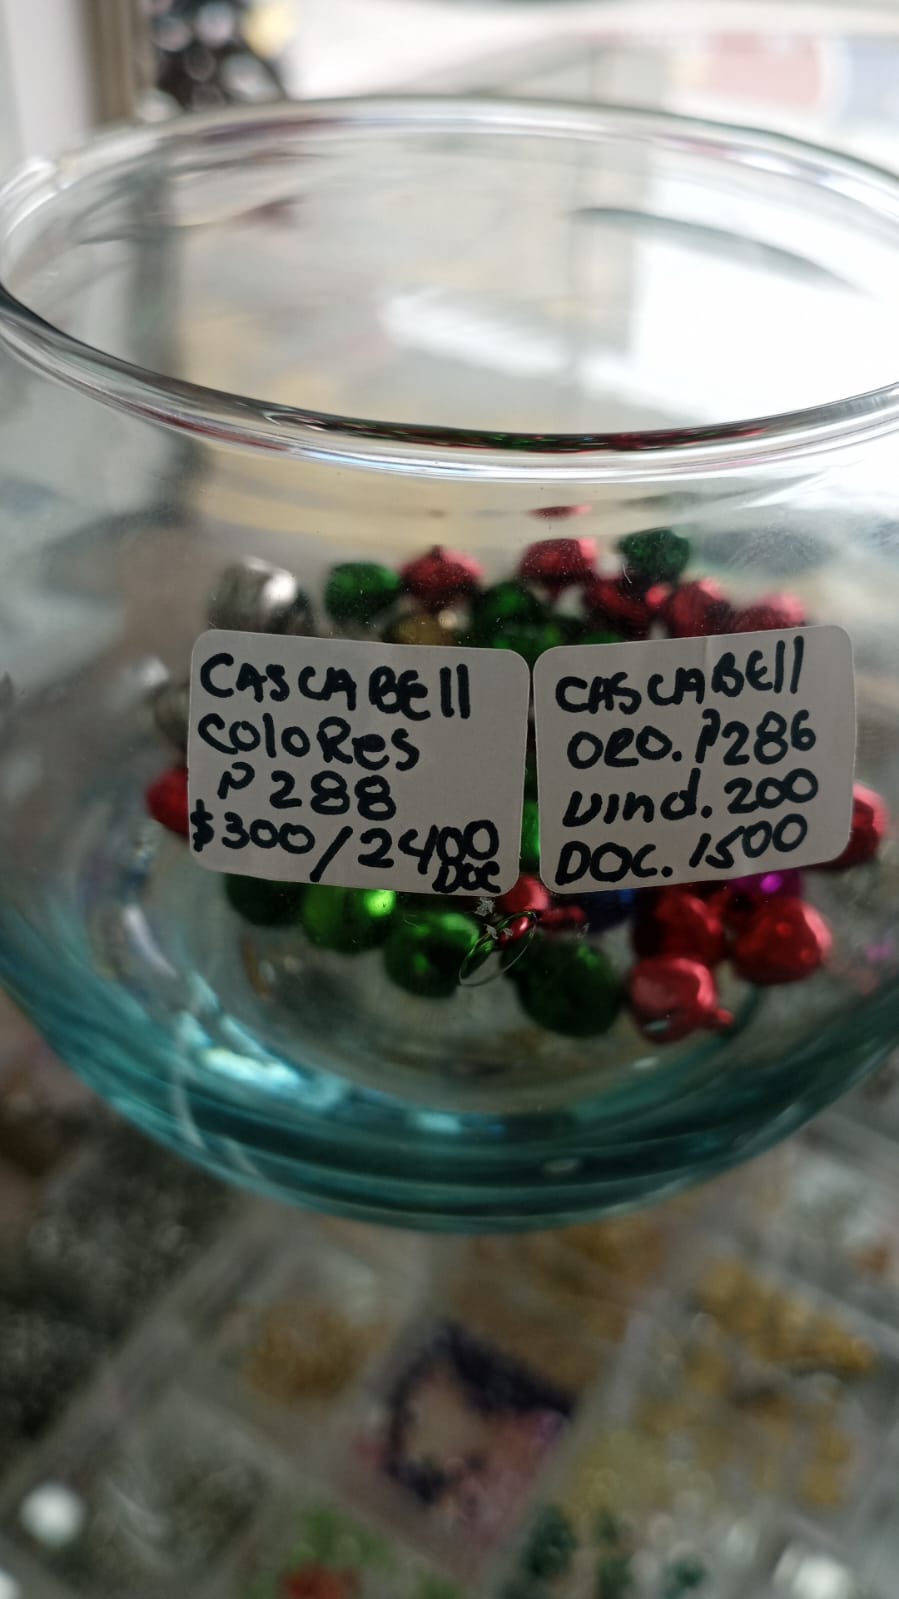 CASCABEll
ColoRes
P 288
$300/2400
DOC
CASCABEll
ORO. P286
Uind. 200
DOC. 1500